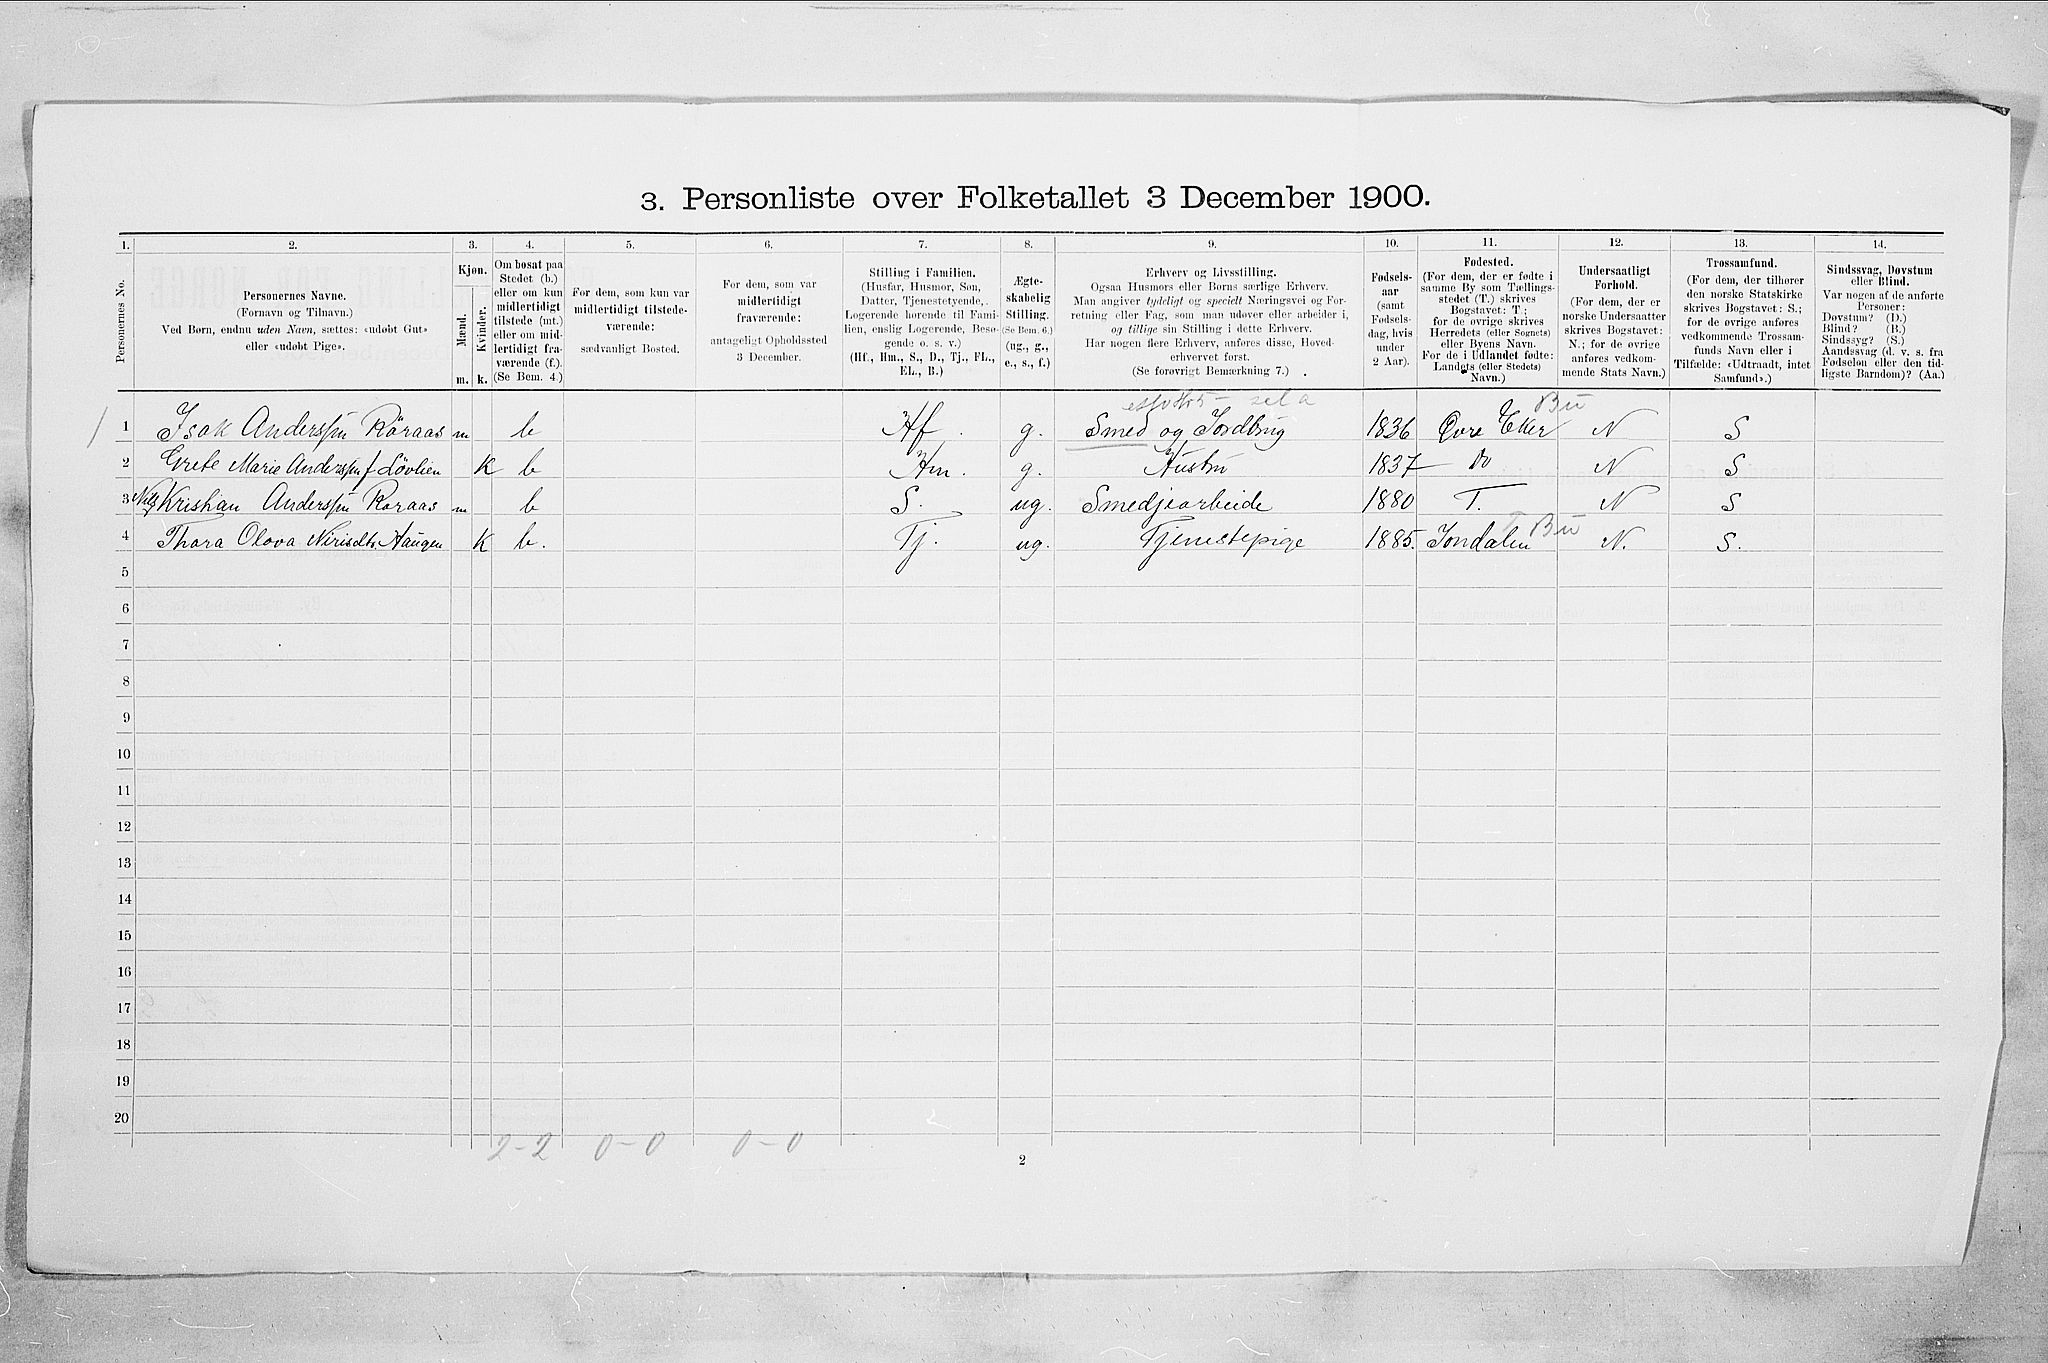 3. Personliste over Folketallet 3 December 1900.
1. 2. 3. 4. 5. 6. 7. 8. 9. 10. 11. 12. 13. 14.
Personernes No.
Personernes Navne.
(Fornavn og Tilnavn.)
Ved Børn, endnu uden Navn, sættes: «udøbt Gut»
eller «udøbt Pige».
Kjøn.
Mænd.
Kvinder.
m. k.
Om bosat paa
Stedet (b.)
eller om kun
midlertidigt
tilstede (mt.)
eller om mid-
lertidigt fra-
værende (f.).
(Se Bem. 4.)
For dem, som kun var
midlertidigt tilstede-
værende:
sædvanligt Bosted.
For dem, som var
midlertidigt
fraværende:
antageligt Opholdssted
3 December.
Stilling i Familien.
(Husfar, Husmor, Søn,
Datter, Tjenestetyende,
Logerende hørende til Fami-
lien, enslig Logerende, Besø-
gende o. s. v.)
(Hf., Hm., S., D., Tj., FL.,
EL., B.)
Ægte-
skabelig
Stilling.
(Se Bem. 6.)
(ug., g.,
e., s., f.)
Erhverv og Livsstilling.
Ogsaa Husmors eller Børns særlige Erhverv.
Man angiver tydeligt og specielt Næringsvei og For-
retning eller Fag, som man udøver eller arbeider i,
og tillige sin Stilling i dette Erhverv.
Har nogen flere Erhverv, anføres disse, Hoved-
erhvervet først.
(Se forøvrigt Bemærkning 7.)
Fødsels-
aar
(samt
Fødsels-
dag, hvis
under
2 Aar).
Fødested.
(For dem, der er fødte i
samme By som Tællings-
stedet (T.) skrives
Bogstavet: T.;
for de øvrige skrives
Herredets (eller Sognets)
eller Byens Navn.
For de i Udlandet fødte:
Landets (eller Stedets)
Navn.)
Undersaatligt
Forhold.
(For dem, der er
norske Undersaatter
skrives Bogstavet:
N.; for de øvrige
anføres vedkom-
mende Stats Navn.)
Trossamfund.
(For dem, der tilhører
den norske Statskirke
skrives Bogstavet: S.;
for de øvrige anføres
vedkommende Trossam-
funds Navn eller i
Tilfælde: «Udtraadt, intet
Samfund».)
Sindssvag, Døvstum
eller Blind.
Var nogen af de anførte
Personer:
Døvstum? (D.)
Blind? (B.)
Sindssyg? (S.)
Aandssvag (d. v. s. fra
Fødselen eller den tid-
ligste Barndom)? (Aa.)
Bu
1 Isak Anderssøn Röraas m b Hf. g. Smed og Jordbrug 1836 Øvre Eker N S
2 Grete Marie Anderssen f Løvlien K b Hm. g. Hustru 1837 Do N S
3 Nils Kristian Anderssøn Röraas m b S. ug. Smedjearbeide 1880 T. N S
Bu
4 Thora Olova Haugen K b. Tj. ug. Tjenestepige 1885. Jondalen N. S.
5
6
7
8
9
10
11
12
13
14
15
16
17
18
19
20
2-2 0-0 0-0
2